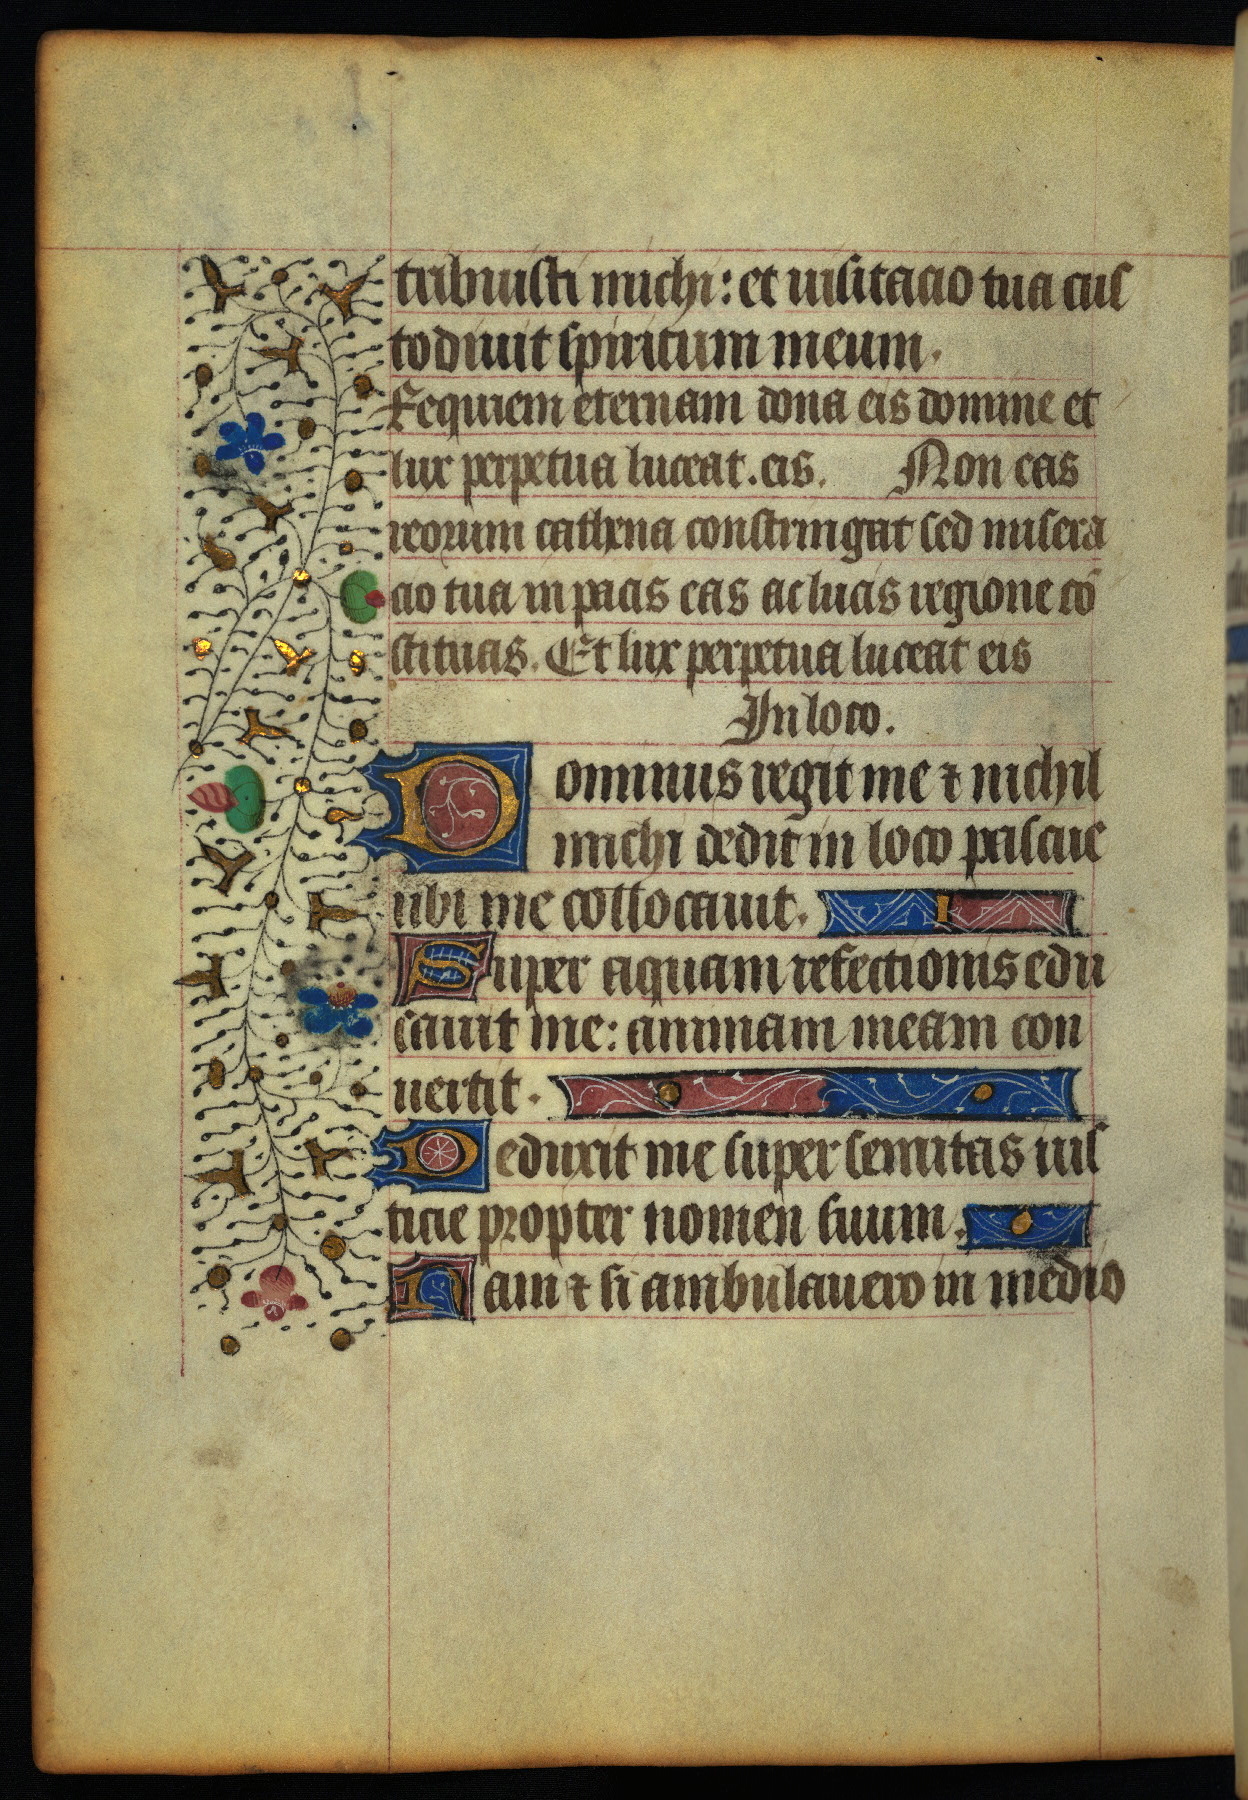 tribuisti michi: et uisitacio tua cus
todiuit spiritum meum.
Requiem eternam dona eis domine et
lux perpetua luceat.eis. Non eas
reorum cathena constringat sed misera
cio tua in pacis eas ac lucis regione cō
stituas. Et lux perpetua luceat eis
In loco.
Dominus regit me ⁊ nichil
michi dedit in loco pascue
ubi me collocauit.
Super aquam refectionis edu
cauit me: animam meam con
uertit.
Deduxit me super semitas ius
ticie propter nomen suum.
Nam ⁊ si ambulauero in medio